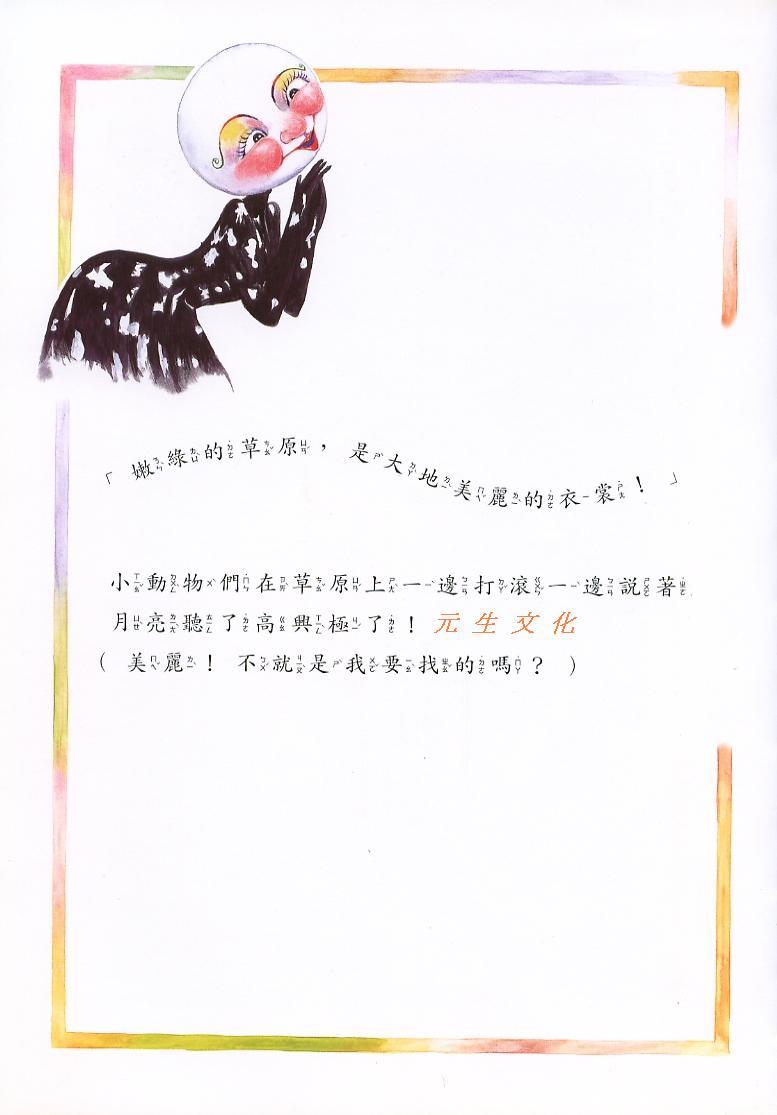 「嫩綠的草原，是大地美麗的衣裳！」
小動物們在草原上一邊打滾一邊說著
月亮聽了高興極了！元生文化
（美麗！不就是我要找的嗎？）